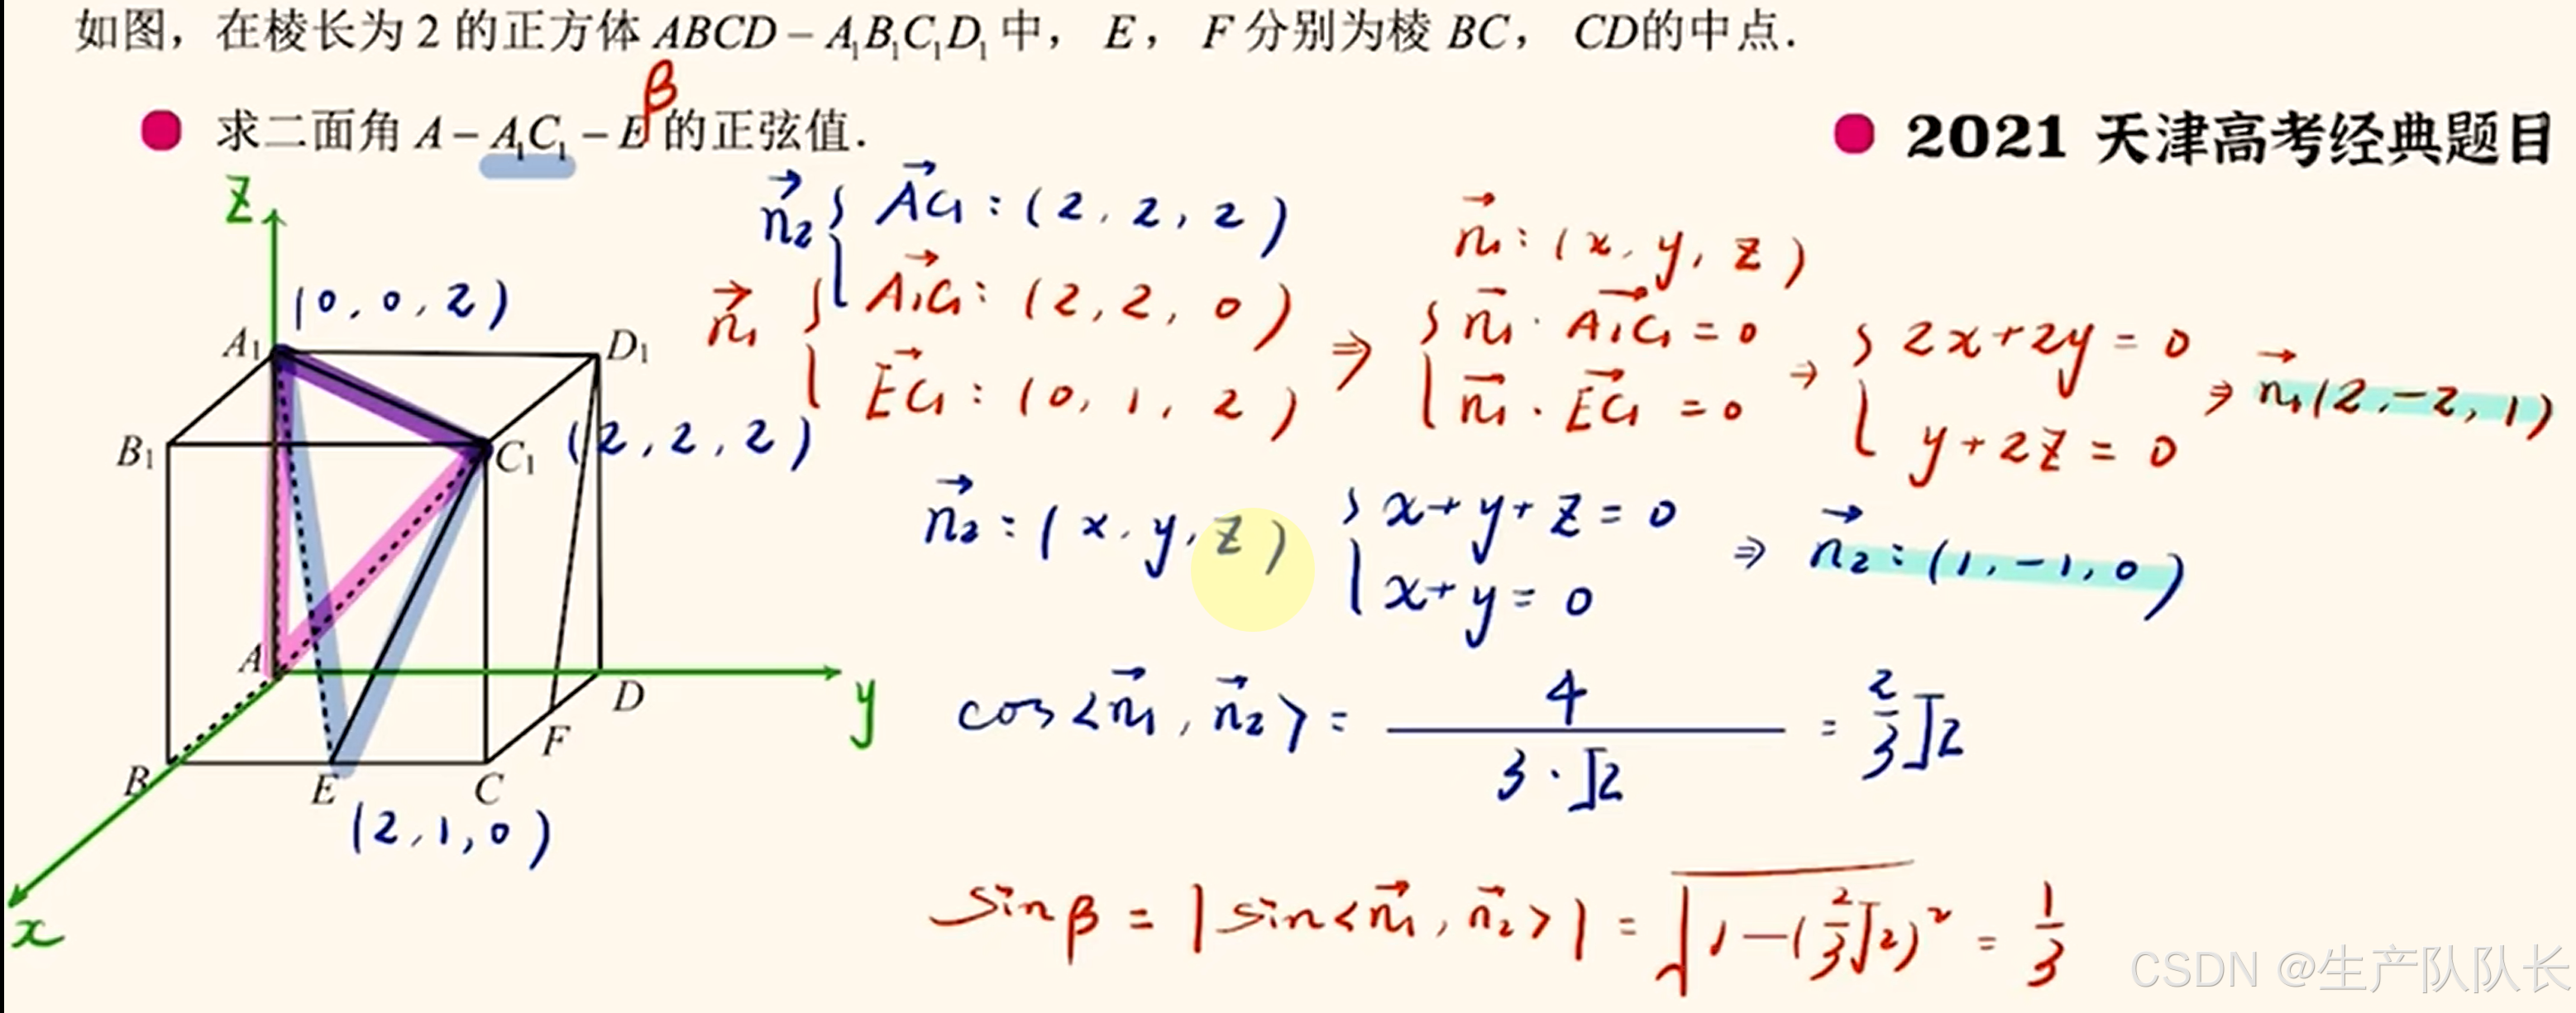 如图，在棱长为 2 的正方体 ABCD－A₁B₁C₁D₁ 中， E， F 分别为棱 BC， CD的中点．
β
● 求二面角 A－A₁C₁－E 的正弦值．
● 2021 天津高考经典题目
z
(0, 0, 2)
A₁
D₁
B₁
C₁
(2, 2, 2)
A
D
y
F
B
E
C
(2, 1, 0)
x
n₂⃗ { AC₁⃗ : (2, 2, 2)
n₁⃗ { A₁C₁⃗ : (2, 2, 0)
EC₁⃗ : (0, 1, 2)
⇒
n₁⃗ : (x, y, z)
{ n₁⃗ · A₁C₁⃗ = 0
n₁⃗ · EC₁⃗ = 0
→ { 2x+2y = 0
y+2z = 0
⇒ n₁⃗ (2, -2, 1)
n₂⃗ : (x, y, z) { x+y+z = 0
x+y = 0
⇒ n₂⃗ : (1, -1, 0)
cos<n₁⃗, n₂⃗> = 4/(3·√2) = 2/3 √2
sinβ = |sin<n₁⃗, n₂⃗>| = √(1-(2/3 √2)²) = 1/3
CSDN @生产队队长